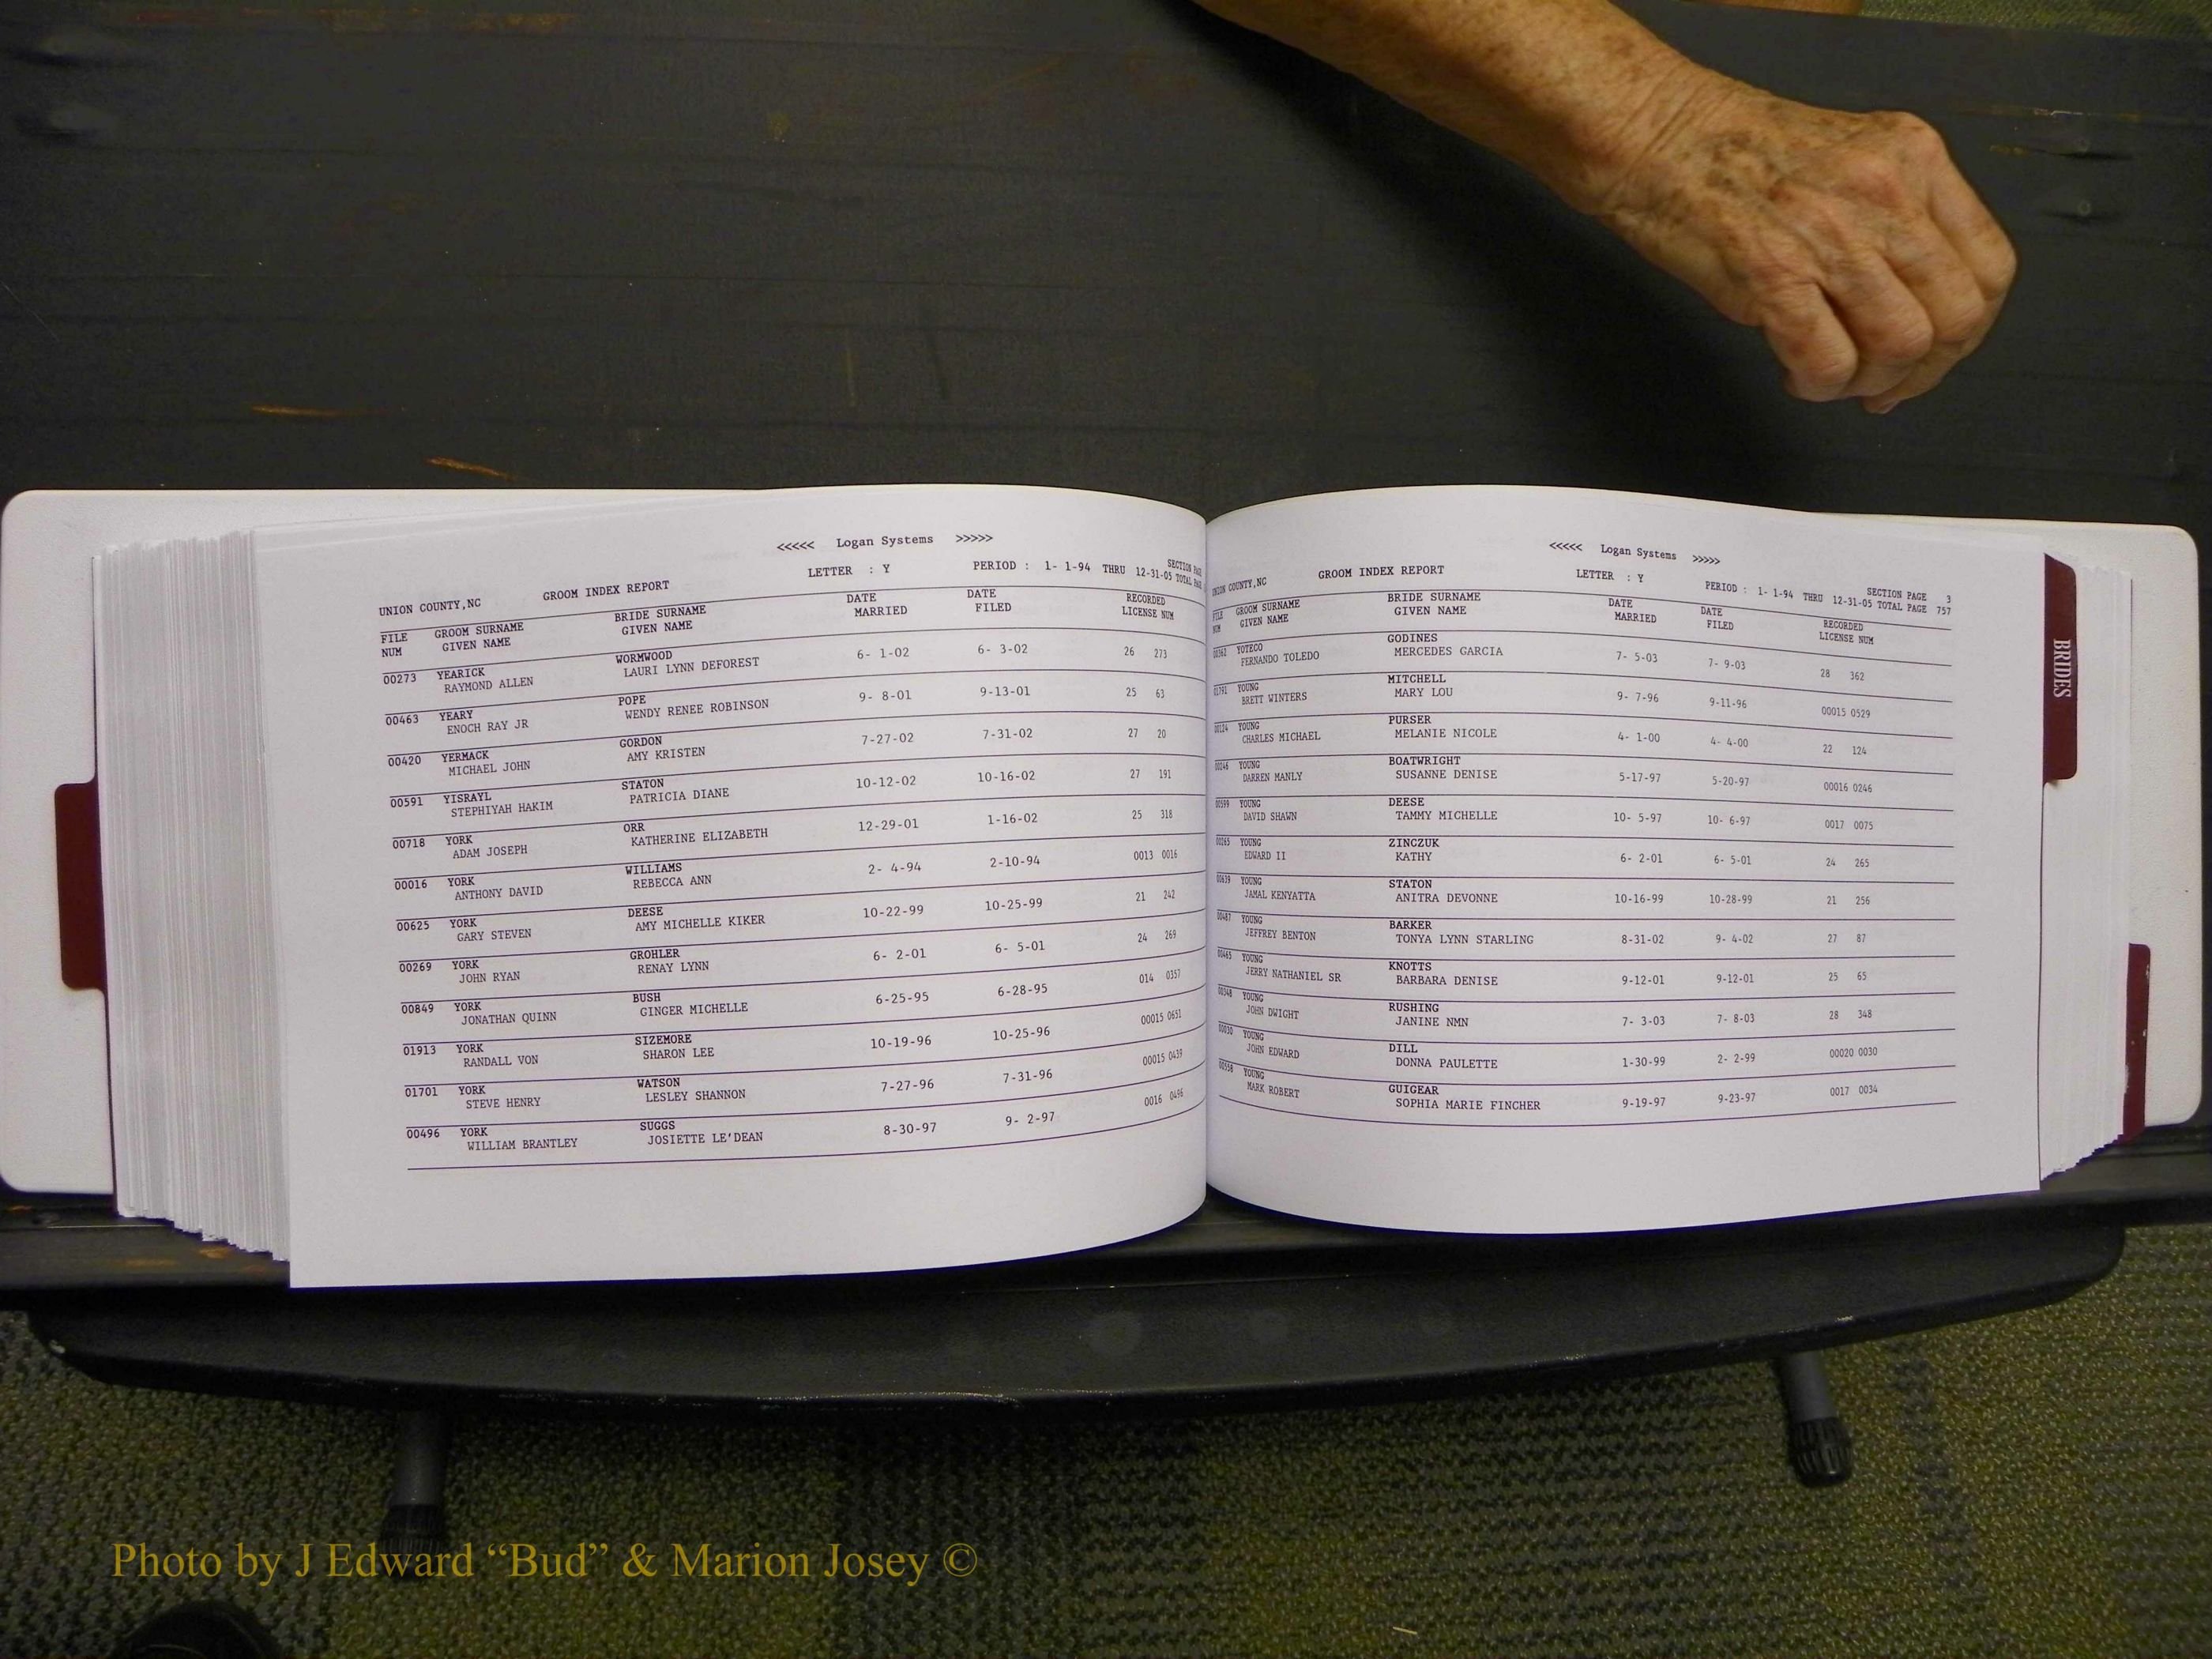 <<<<< Logan Systems >>>>>
UNION COUNTY,NC GROOM INDEX REPORT LETTER : Y PERIOD : 1- 1-94 THRU 12-31-05
SECTION PAGE
TOTAL PAGE
FILE GROOM SURNAME BRIDE SURNAME DATE DATE RECORDED
NUM GIVEN NAME GIVEN NAME MARRIED FILED LICENSE NUM
00273 YEARICK WORMWOOD 6- 1-02 6- 3-02 26 273
RAYMOND ALLEN LAURI LYNN DEFOREST
00463 YEARY POPE 9- 8-01 9-13-01 25 63
ENOCH RAY JR WENDY RENEE ROBINSON
00420 YERMACK GORDON 7-27-02 7-31-02 27 20
MICHAEL JOHN AMY KRISTEN
00591 YISRAYL STATON 10-12-02 10-16-02 27 191
STEPHIYAH HAKIM PATRICIA DIANE
00718 YORK ORR 12-29-01 1-16-02 25 318
ADAM JOSEPH KATHERINE ELIZABETH
00016 YORK WILLIAMS 2- 4-94 2-10-94 0013 0016
ANTHONY DAVID REBECCA ANN
00625 YORK DEESE 10-22-99 10-25-99 21 242
GARY STEVEN AMY MICHELLE KIKER
00269 YORK GROHLER 6- 2-01 6- 5-01 24 269
JOHN RYAN RENAY LYNN
00849 YORK BUSH 6-25-95 6-28-95 014 0357
JONATHAN QUINN GINGER MICHELLE
01913 YORK SIZEMORE 10-19-96 10-25-96 00015 0651
RANDALL VON SHARON LEE
01701 YORK WATSON 7-27-96 7-31-96 00015 0439
STEVE HENRY LESLEY SHANNON
00496 YORK SUGGS 8-30-97 9- 2-97 0016 0496
WILLIAM BRANTLEY JOSIETTE LE'DEAN
<<<<< Logan Systems >>>>>
UNION COUNTY,NC GROOM INDEX REPORT LETTER : Y PERIOD : 1- 1-94 THRU 12-31-05
SECTION PAGE 3
TOTAL PAGE 757
FILE GROOM SURNAME BRIDE SURNAME DATE DATE RECORDED
NUM GIVEN NAME GIVEN NAME MARRIED FILED LICENSE NUM
00362 YOTECO GODINES 7- 5-03 7- 9-03 28 362
FERNANDO TOLEDO MERCEDES GARCIA
01791 YOUNG MITCHELL 9- 7-96 9-11-96 00015 0529
BRETT WINTERS MARY LOU
00124 YOUNG PURSER 4- 1-00 4- 4-00 22 124
CHARLES MICHAEL MELANIE NICOLE
00246 YOUNG BOATWRIGHT 5-17-97 5-20-97 00016 0246
DARREN MANLY SUSANNE DENISE
00599 YOUNG DEESE 10- 5-97 10- 6-97 0017 0075
DAVID SHAWN TAMMY MICHELLE
00265 YOUNG ZINCZUK 6- 2-01 6- 5-01 24 265
EDWARD II KATHY
00639 YOUNG STATON 10-16-99 10-28-99 21 256
JAMAL KENYATTA ANITRA DEVONNE
00487 YOUNG BARKER 8-31-02 9- 4-02 27 87
JEFFREY BENTON TONYA LYNN STARLING
00465 YOUNG KNOTTS 9-12-01 9-12-01 25 65
JERRY NATHANIEL SR BARBARA DENISE
00348 YOUNG RUSHING 7- 3-03 7- 8-03 28 348
JOHN DWIGHT JANINE NMN
00030 YOUNG DILL 1-30-99 2- 2-99 00020 0030
JOHN EDWARD DONNA PAULETTE
00558 YOUNG GUIGEAR 9-19-97 9-23-97 0017 0034
MARK ROBERT SOPHIA MARIE FINCHER
BRIDES
Photo by J Edward “Bud” & Marion Josey ©